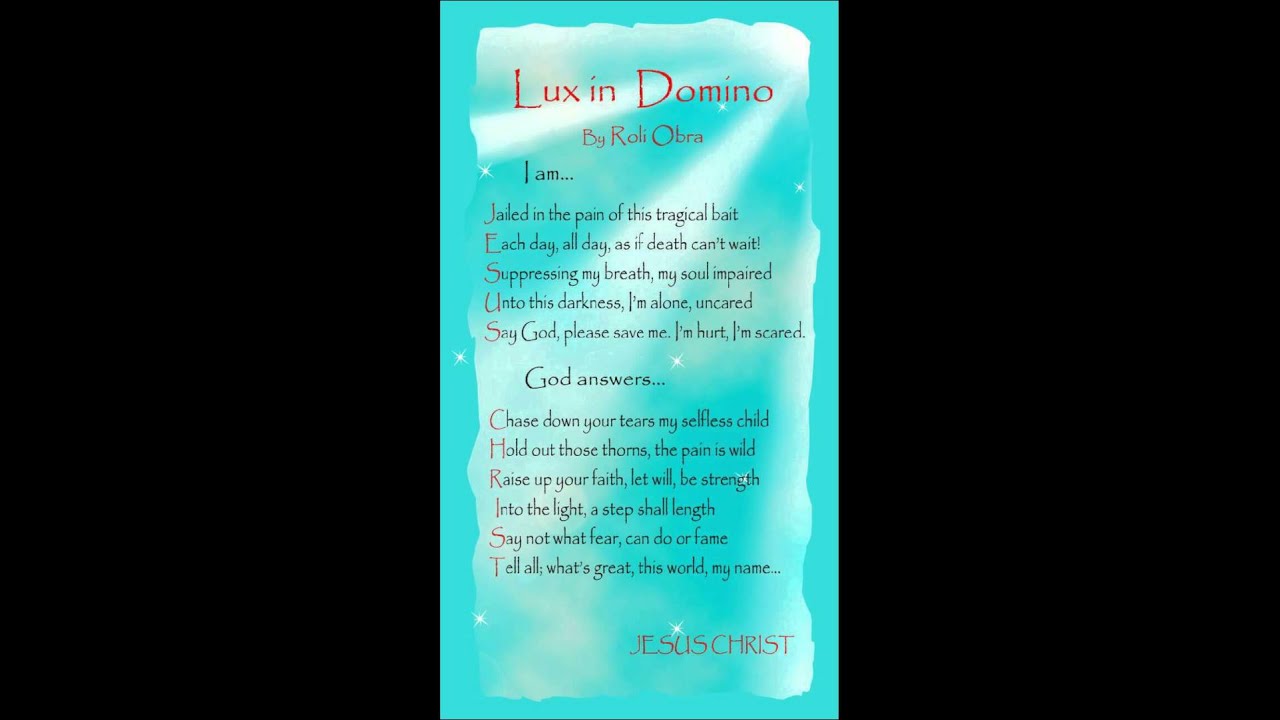 Lux in Domino
By Roli Obra
I am...
Jailed in the pain of this tragical bait
Each day, all day, as if death can't wait!
Suppressing my breath, my soul impaired
Unto this darkness, I'm alone, uncared
Say God, please save me. I'm hurt, I'm scared.
God answers...
Chase down your tears my selfless child
Hold out those thorns, the pain is wild
Raise up your faith, let will, be strength
Into the light, a step shall length
Say not what fear, can do or fame
Tell all; what's great, this world, my name...
JESUS CHRIST